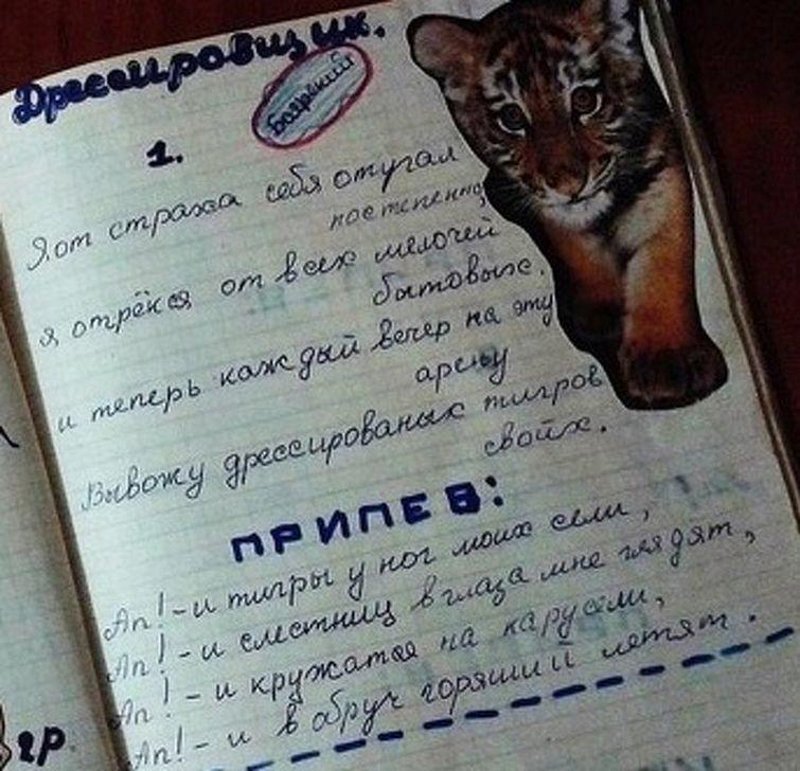 Дрессировщик.
Боярский
1.
Я от страха себя отучал
постепенно,
я отрёкся от всех мелочей
бытовых.
и теперь каждый вечер на эту
арену
Вывожу дрессированых тигров
свойх.
ПРИПЕВ:
Ап! - и тигры у ног моих сели,
Ап! - и с лестниц в глаза мне глядят,
Ап! - и кружатся на карусели,
Ап! - и в обруч горяший летят.
гр.